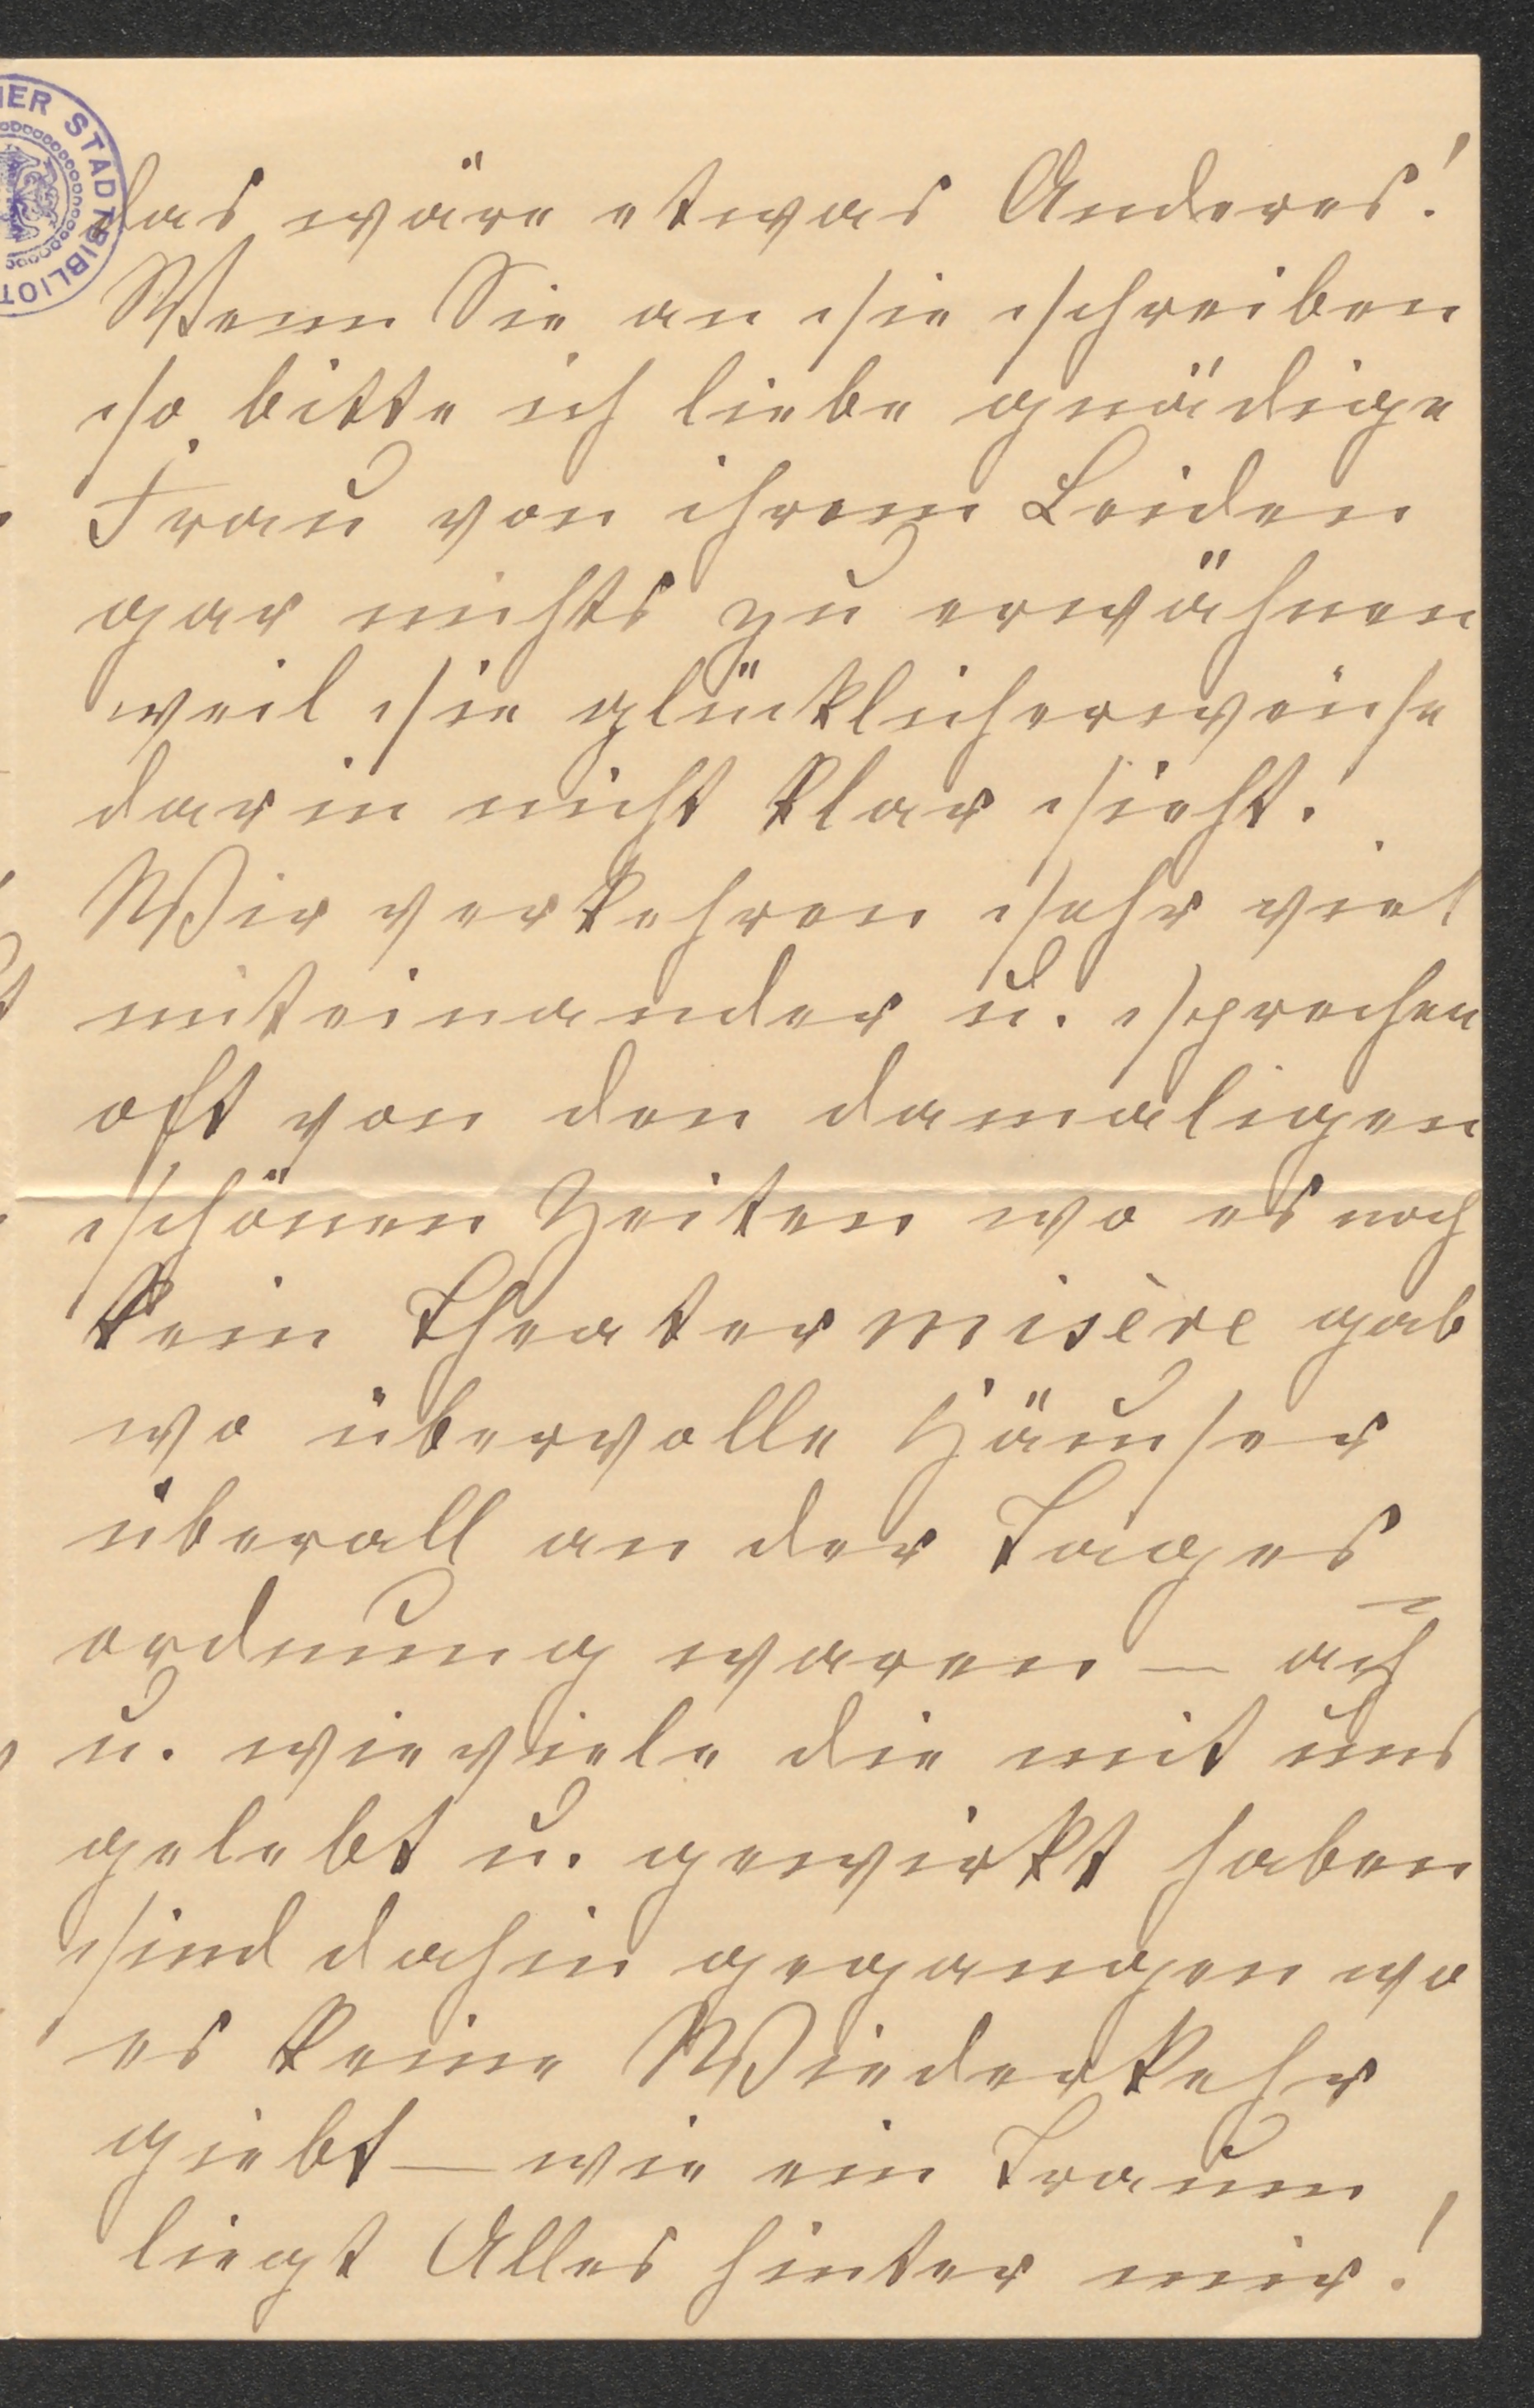 IER STADTBIBLIOT
das wäre etwas Anderes!
Wenn Sie an sie schreiben
so bitte ich liebe gnädige
Frau von ihrem Leiden
gar nichts zu erwähnen
weil sie glücklicherweise
darin nicht klar sieht.
Wir verkehren sehr viel
miteinander u. sprechen
oft von den damaligen
schönen Zeiten wo es noch
kein Theatermisère gab
wo übervolle Häuser
überall an der Tages=
ordnung waren — ach
u. wieviele die mit uns
gelebt u. gewirkt haben
sind dahin gegangen wo
es keine Wiederkehr
giebt — wie ein Traum
liegt Alles hinter mir!